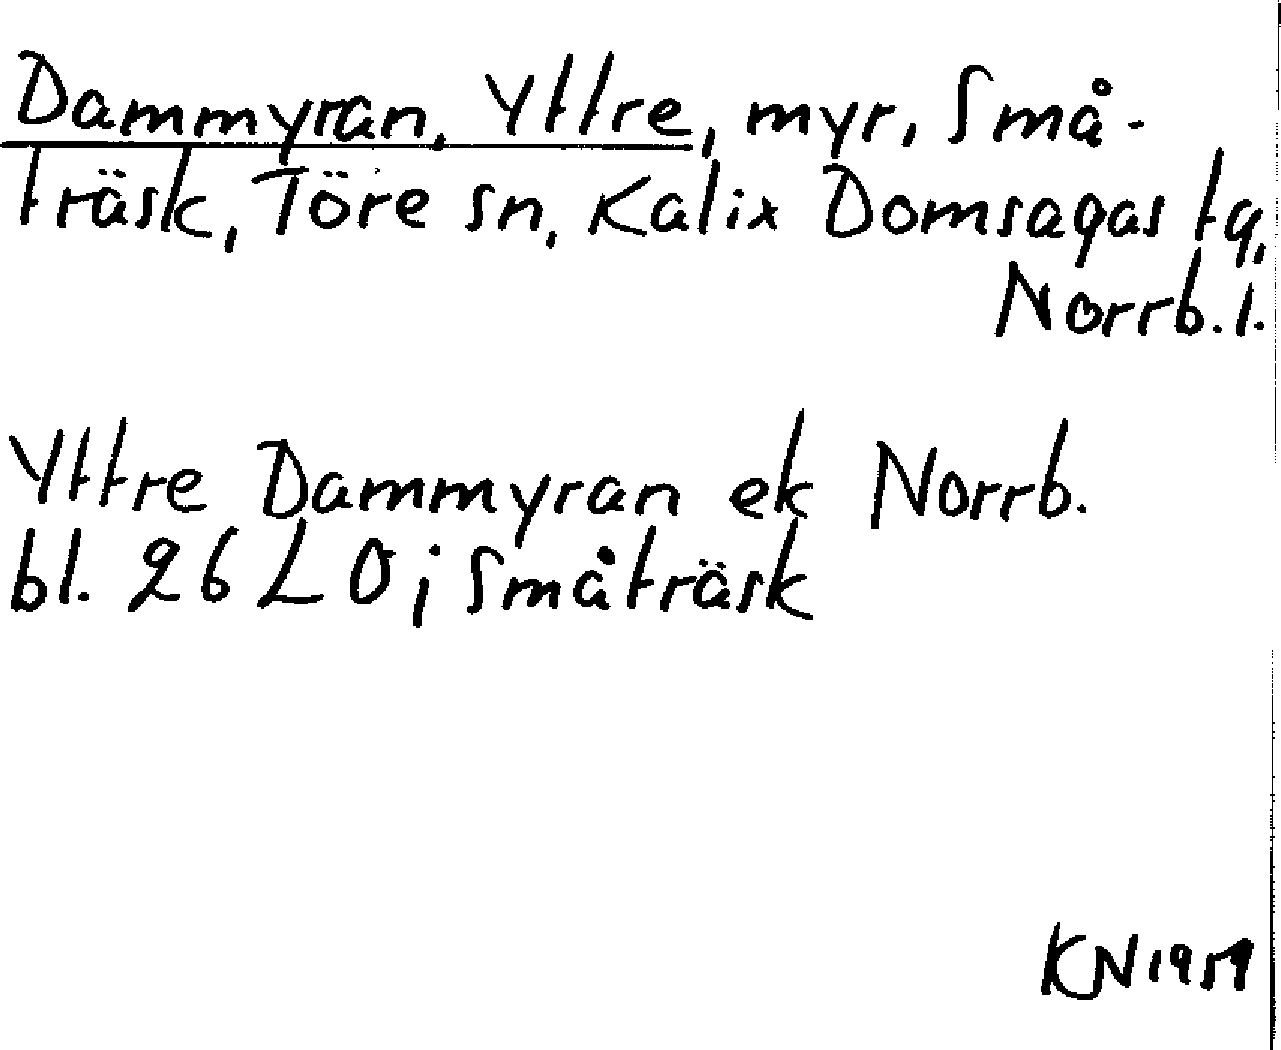 Dammyran, Yttre, myr, Små-
träsk, Töre sn, Kalix Domsagas tg,
Norrb. l.
Yttre Dammyran ek Norrb.
bl. 26 L O; Småträsk
KN 1959